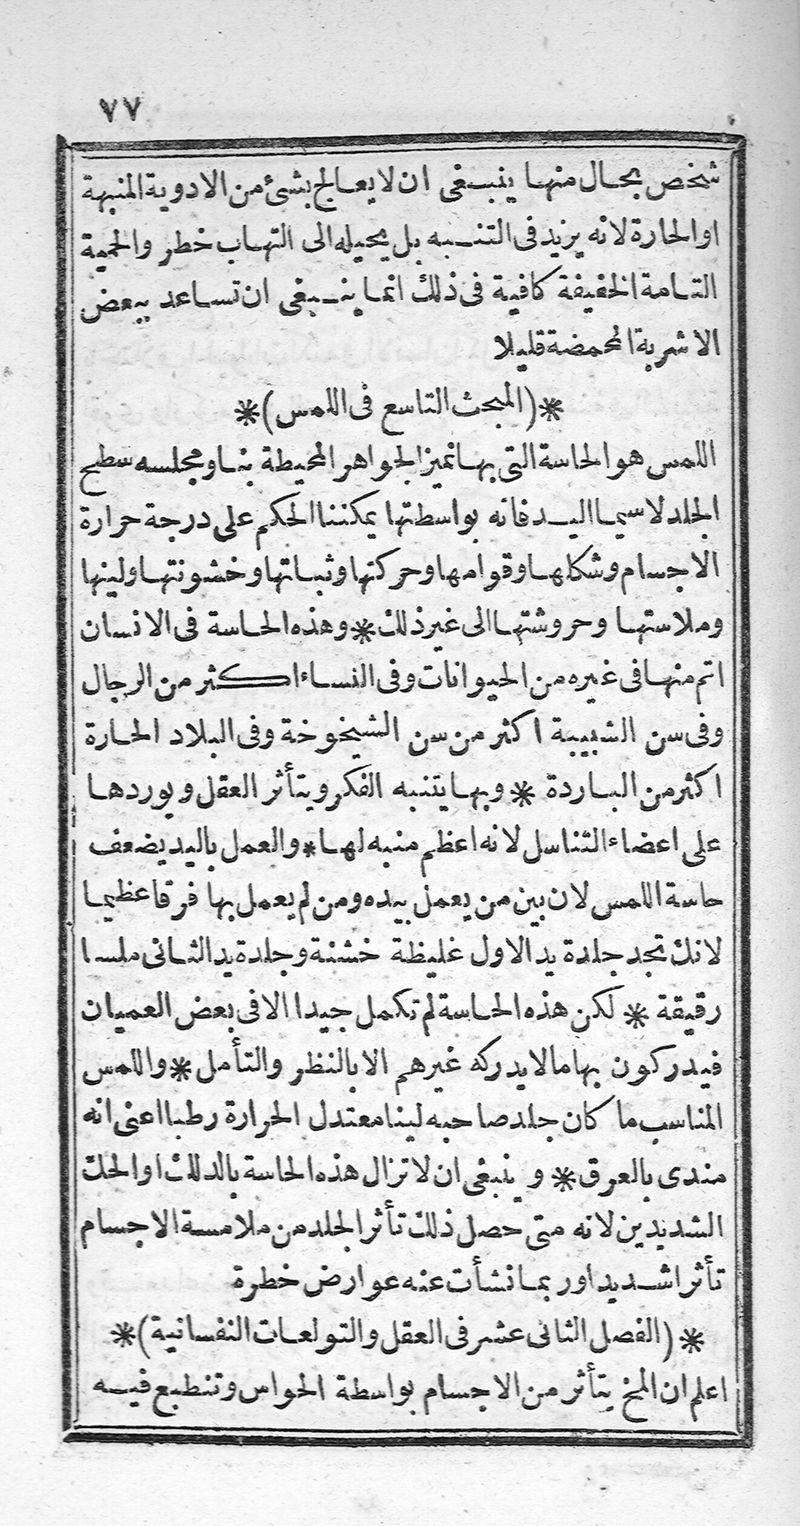 ٧٧
شخص بحال منها ينبغى ان لا يعالج بشئ من الادوية المنبهة
او الحارة لانه يزيد فى التنبه بل يحيله الى التهاب خطر والحمية
التامة الخفيفة كافية فى ذلك انما ينبغى ان تساعد ببعض
الاشربة المحمضة قليلا
✻(المبحث التاسع فى اللمس)✻
اللمس هو الحاسة التى بها نميز الجواهر المحيطة بنا ومجلسه سطح
الجلد لاسيما اليد فانه بواسطتها يمكننا الحكم على درجة حرارة
الاجسام وشكلها وقوامها وحركتها وثباتها وخشونتها ولينها
وملاستها وحروشتها الى غير ذلك✻وهذه الحاسة فى الانسان
اتم منها فى غيره من الحيوانات وفى النساء اكثر من الرجال
وفى سن الشبيبة اكثر من سن الشيخوخة وفى البلاد الحارة
اكثر من الباردة ✻ وبها يتنبه الفكر ويتأثر العقل ويوردها
على اعضاء التناسل لانه اعظم منبه لها✻والعمل باليد يضعف
حاسة اللمس لان بين من يعمل بيده ومن لم يعمل بها فرقا عظيما
لانك تجد جلدة يد الاول غليظة خشنة وجلدة يد الثانى ملسا
رقيقة ✻ لكن هذه الحاسة لم تكمل جيدا الا فى بعض العميان
فيدركون بها ما لا يدركه غيرهم الا بالنظر والتأمل✻واللمس
المناسب ما كان جلد صاحبه لينا معتدل الحرارة رطبا اعنى انه
مندى بالعرق✻ وينبغى ان لا تزال هذه الحاسة بالدلك او الحك
الشديدين لانه متى حصل ذلك تأثر الجلد من ملامسة الاجسام
تأثرا شديدا وربما نشأت عنه عوارض خطرة
✻(الفصل الثانى عشر فى العقل والتولعات النفسانية)✻
اعلم ان المخ يتأثر من الاجسام بواسطة الحواس وتنطبع فيه